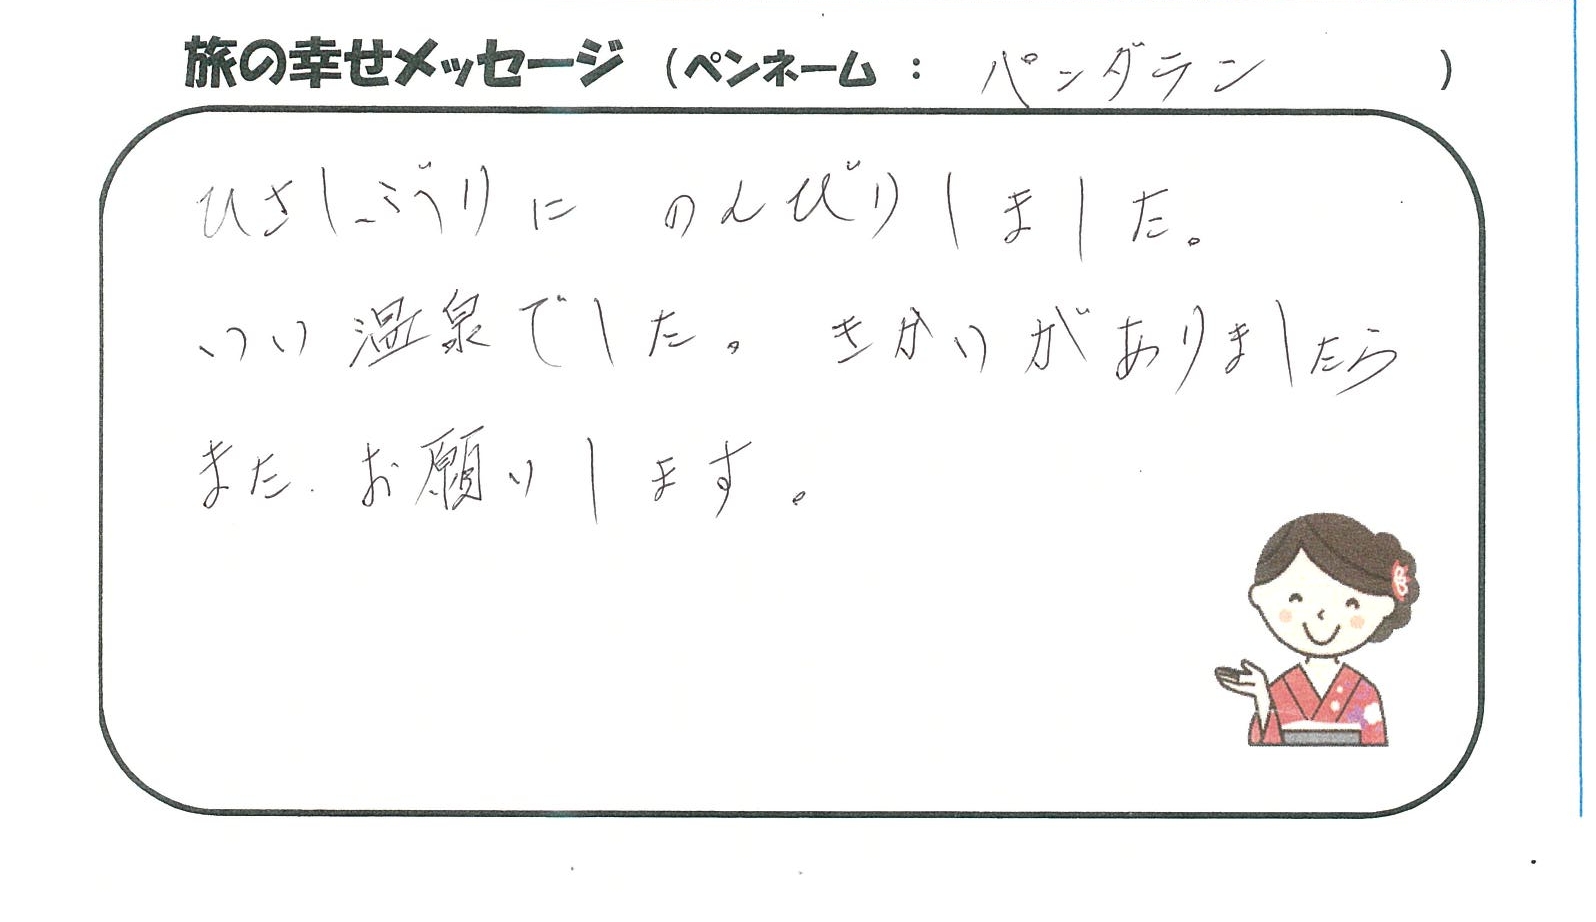 旅の幸せメッセージ (ペンネーム : パンダラン )
ひさしぶりに のんびりしました。
いい温泉でした。 きかいがありましたら
また お願いします。